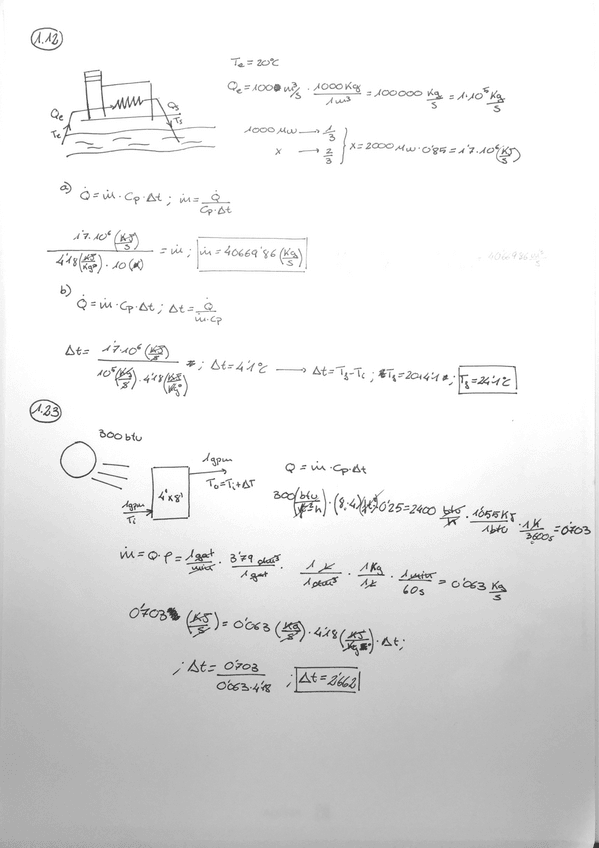 1.12
Te = 20°C
Qe = 1000 m³/s · 1000 Kg / 1 m³ = 100000 Kg/s = 1·10⁵ Kg/s
Qe
Te
Qs
Ts
1000 Mw → 1/3
x → 2/3
x = 2000 Mw · 0'85 = 1'7·10⁶ (KJ/s)
a) Q̇ = ṁ · Cp · Δt ; ṁ = Q̇ / Cp·Δt
1'7·10⁶ (KJ/s) / 4'18 (KJ/Kgº) · 10 (º) = ṁ ; ṁ = 40669'86 (Kg/s)
b)
Q̇ = ṁ · Cp · Δt ; Δt = Q̇ / ṁ·Cp
Δt = 1'7·10⁶ (KJ/s) / 10⁵ (Kg/s) · 4'18 (KJ/Kgº) ; Δt = 4'1°C → Δt = Ts - Ti ; Ts = 20+4'1 ; Ts = 24'1°C
1.23
300 btu
1gpm
To = Ti + ΔT
4' x 8'
1gpm
Ti
Q = ṁ · Cp · Δt
300 (btu/ft²·h) · (8·4) (ft²) 0'25 = 2400 btu/h · 1'055 KJ / 1 btu · 1 h / 3600s = 0'703
ṁ = Q · ρ = 1 gal/min · 3'79 dm³ / 1 gal · 1 L / 1 dm³ · 1 Kg / 1 L · 1 min / 60 s = 0'063 Kg/s
0'703 (KJ/s) = 0'063 (Kg/s) · 4'18 (KJ/Kgº) · Δt ;
; Δt = 0'703 / 0'063·4'18 ; Δt = 2'662